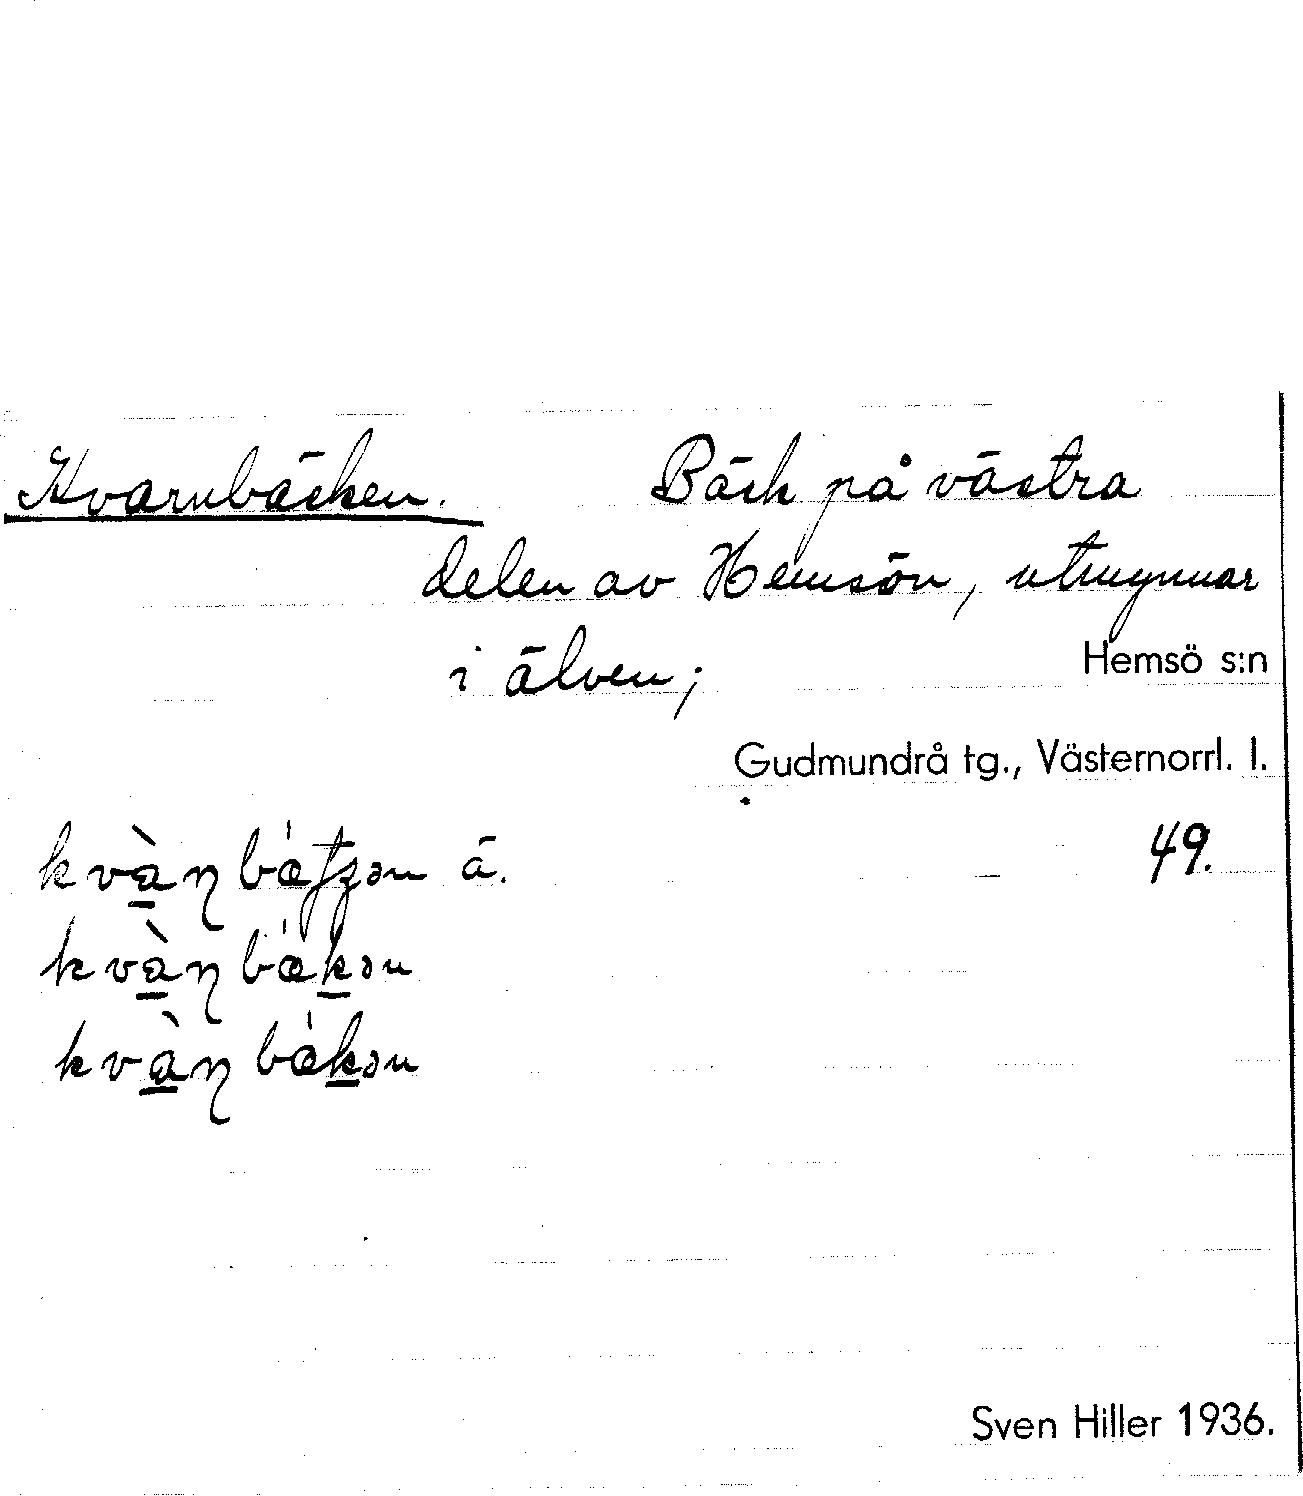 Kvarnbäcken. Bäck på västra
delen av Hemsön, utmynnar
i älven; Hemsö s:n
Gudmundrå tg., Västernorrl. l.
49.
ä.
Sven Hiller 1936.